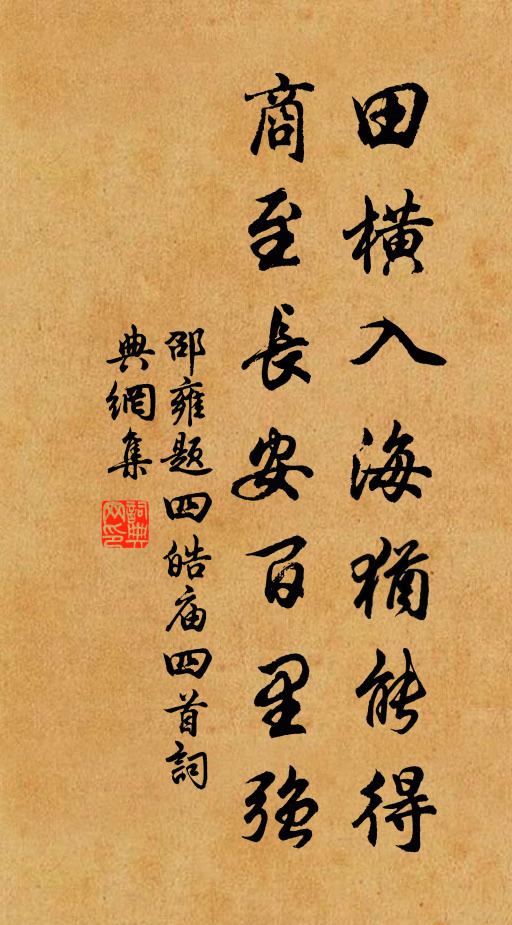 田橫入海猶能得
商至長安百里強
邵雍题四皓庙四首詞
典網集
詞典
网印